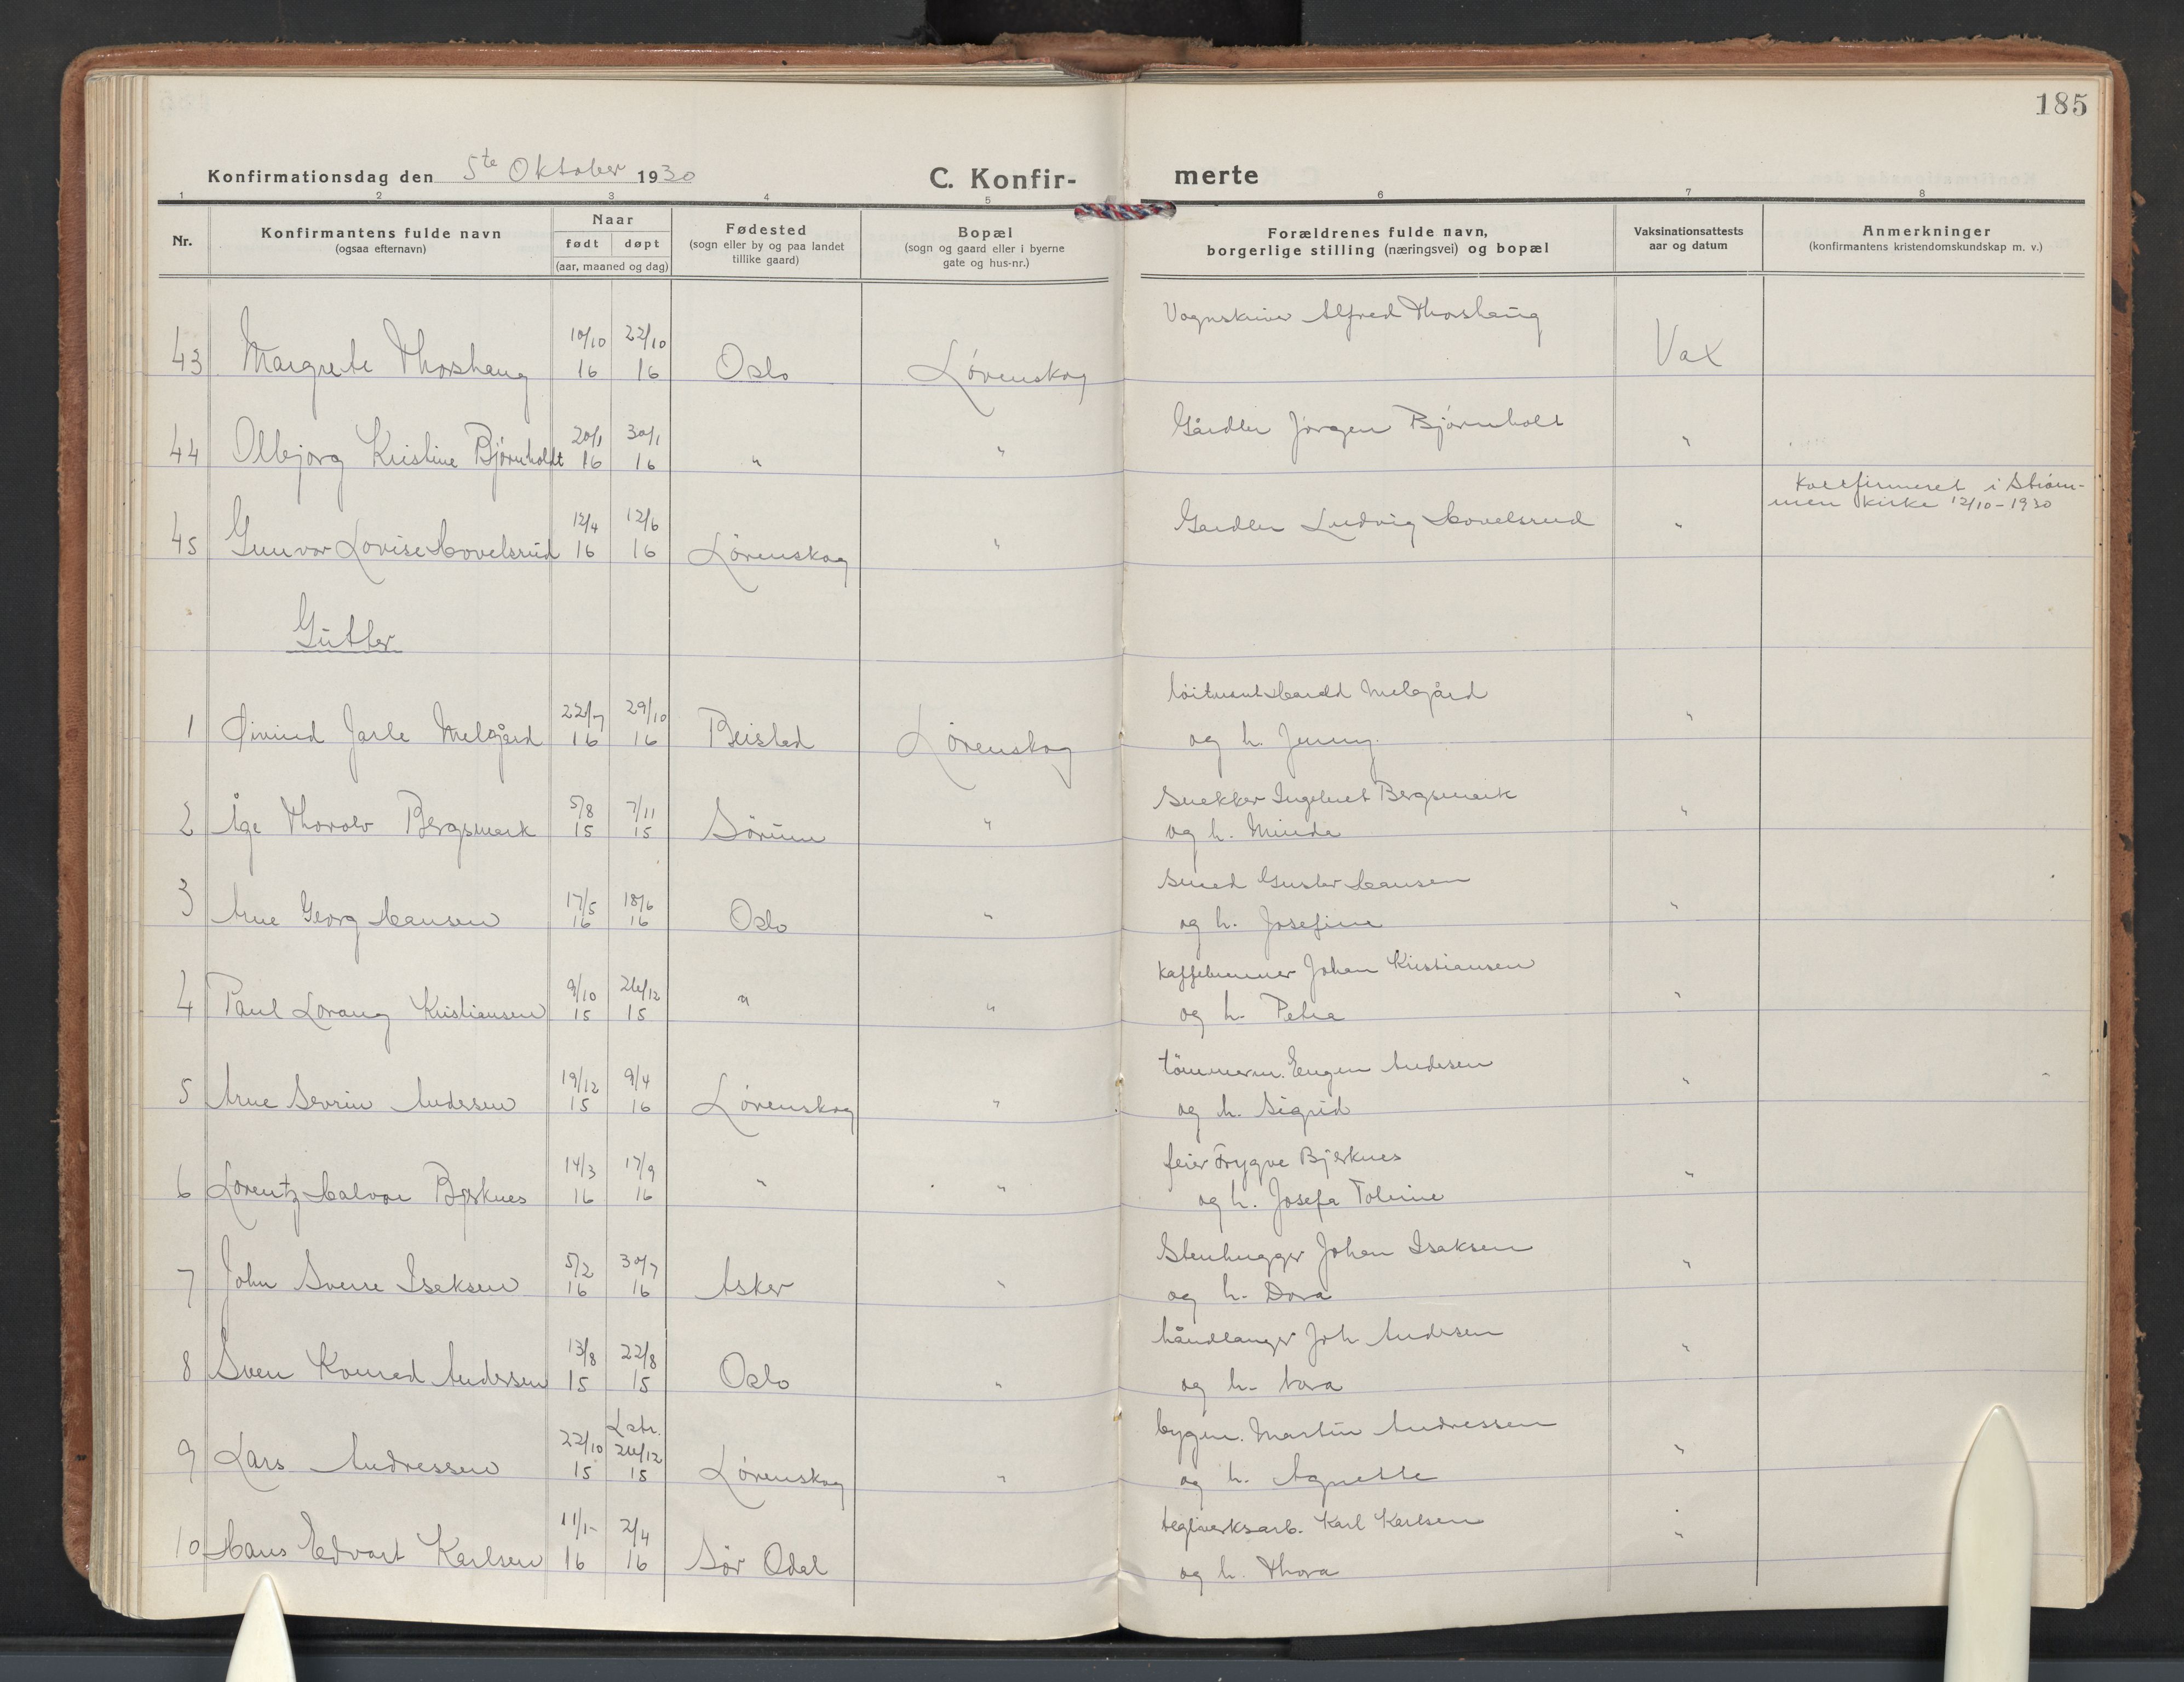 185
Konfirmationsdag den 5te Oktober 1930
C. Konfir- merte
1 2 3 4 5 6 7 8
Nr.
Konfirmantens fulde navn
(ogsaa efternavn)
Naar
født døpt
(aar, maaned og dag)
Fødested
(sogn eller by og paa landet
tillike gaard)
Bopæl
(sogn og gaard eller i byerne
gate og hus-nr.)
Forældrenes fulde navn,
borgerlige stilling (næringsvei) og bopæl
Vaksinationsattests
aar og datum
Anmerkninger
(konfirmantens kristendomskundskap m. v.)
10/10 22/10 Vognskriver Alfred Thoshaug
43 Margrete Thoshaug 16 16 Oslo Lørenskog Vax
20/1 30/1 Gårdbr Jørgen Bjørnholt
44 Olbjørg Kristine Bjørnholdt 16 16 " " "
Konfirmeret i Strøm-
men kirke 12/10-1930
12/4 12/6 Gardbr Ludvig Hovelsrud
45 Gunvor Lovise Hovelsrud 16 16 Lørenskog " "
Gutter
22/7 29/10 løitnant Harald Melgård
1 Øivind Jarle Melgård 16 16 Beistad Lørenskog og h. Jenny. "
5/8 7/11 Snekker Ingebret Bergsmark
2 Åge Thorolv Bergsmark 15 15 Sørum " og h. Minda "
17/5 18/6 Smed Gustav Hansen
3 Arne Georg Hansen 16 16 Oslo " og h. Josefine "
9/10 26/12 kaffebrenner Johan Kristiansen
4 Paul Lorang Kristiansen 15 15 " " og h. Petra "
19/12 9/4 tömmerm. Eugen Andersen
5 Arne Sevrin Andersen 15 16 Lørenskog " og h. Sigrid "
14/3 17/9 feier Trygve Bjerknes
6 Lorentz Halvor Bjerknes 16 16 " " og h. Josefa Toline "
5/2 30/7 Stenhugger Johan Isaksen
7 John Sverre Isaksen 16 16 Asker " og h. Dora "
13/8 22/8 håndlanger Joh Andersen
8 Sven Konrad Andersen 15 15 Oslo " og h. Nora "
22/10 26/12 bygm. Martin Andressen
9 Lars Andressen 15 15 Lørenskog " og h. Agnette "
11/1 2/4 teglverksarb. Karl Karlsen
10 Hans Edvart Karlsen 16 16 Sør Odal og h. Thora "